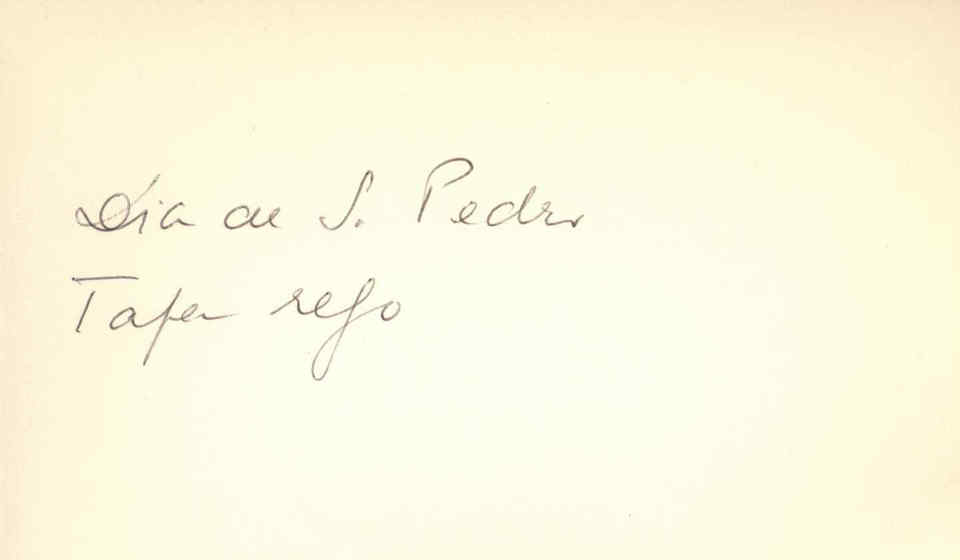 Dia de S. Pedro
Tapa rego